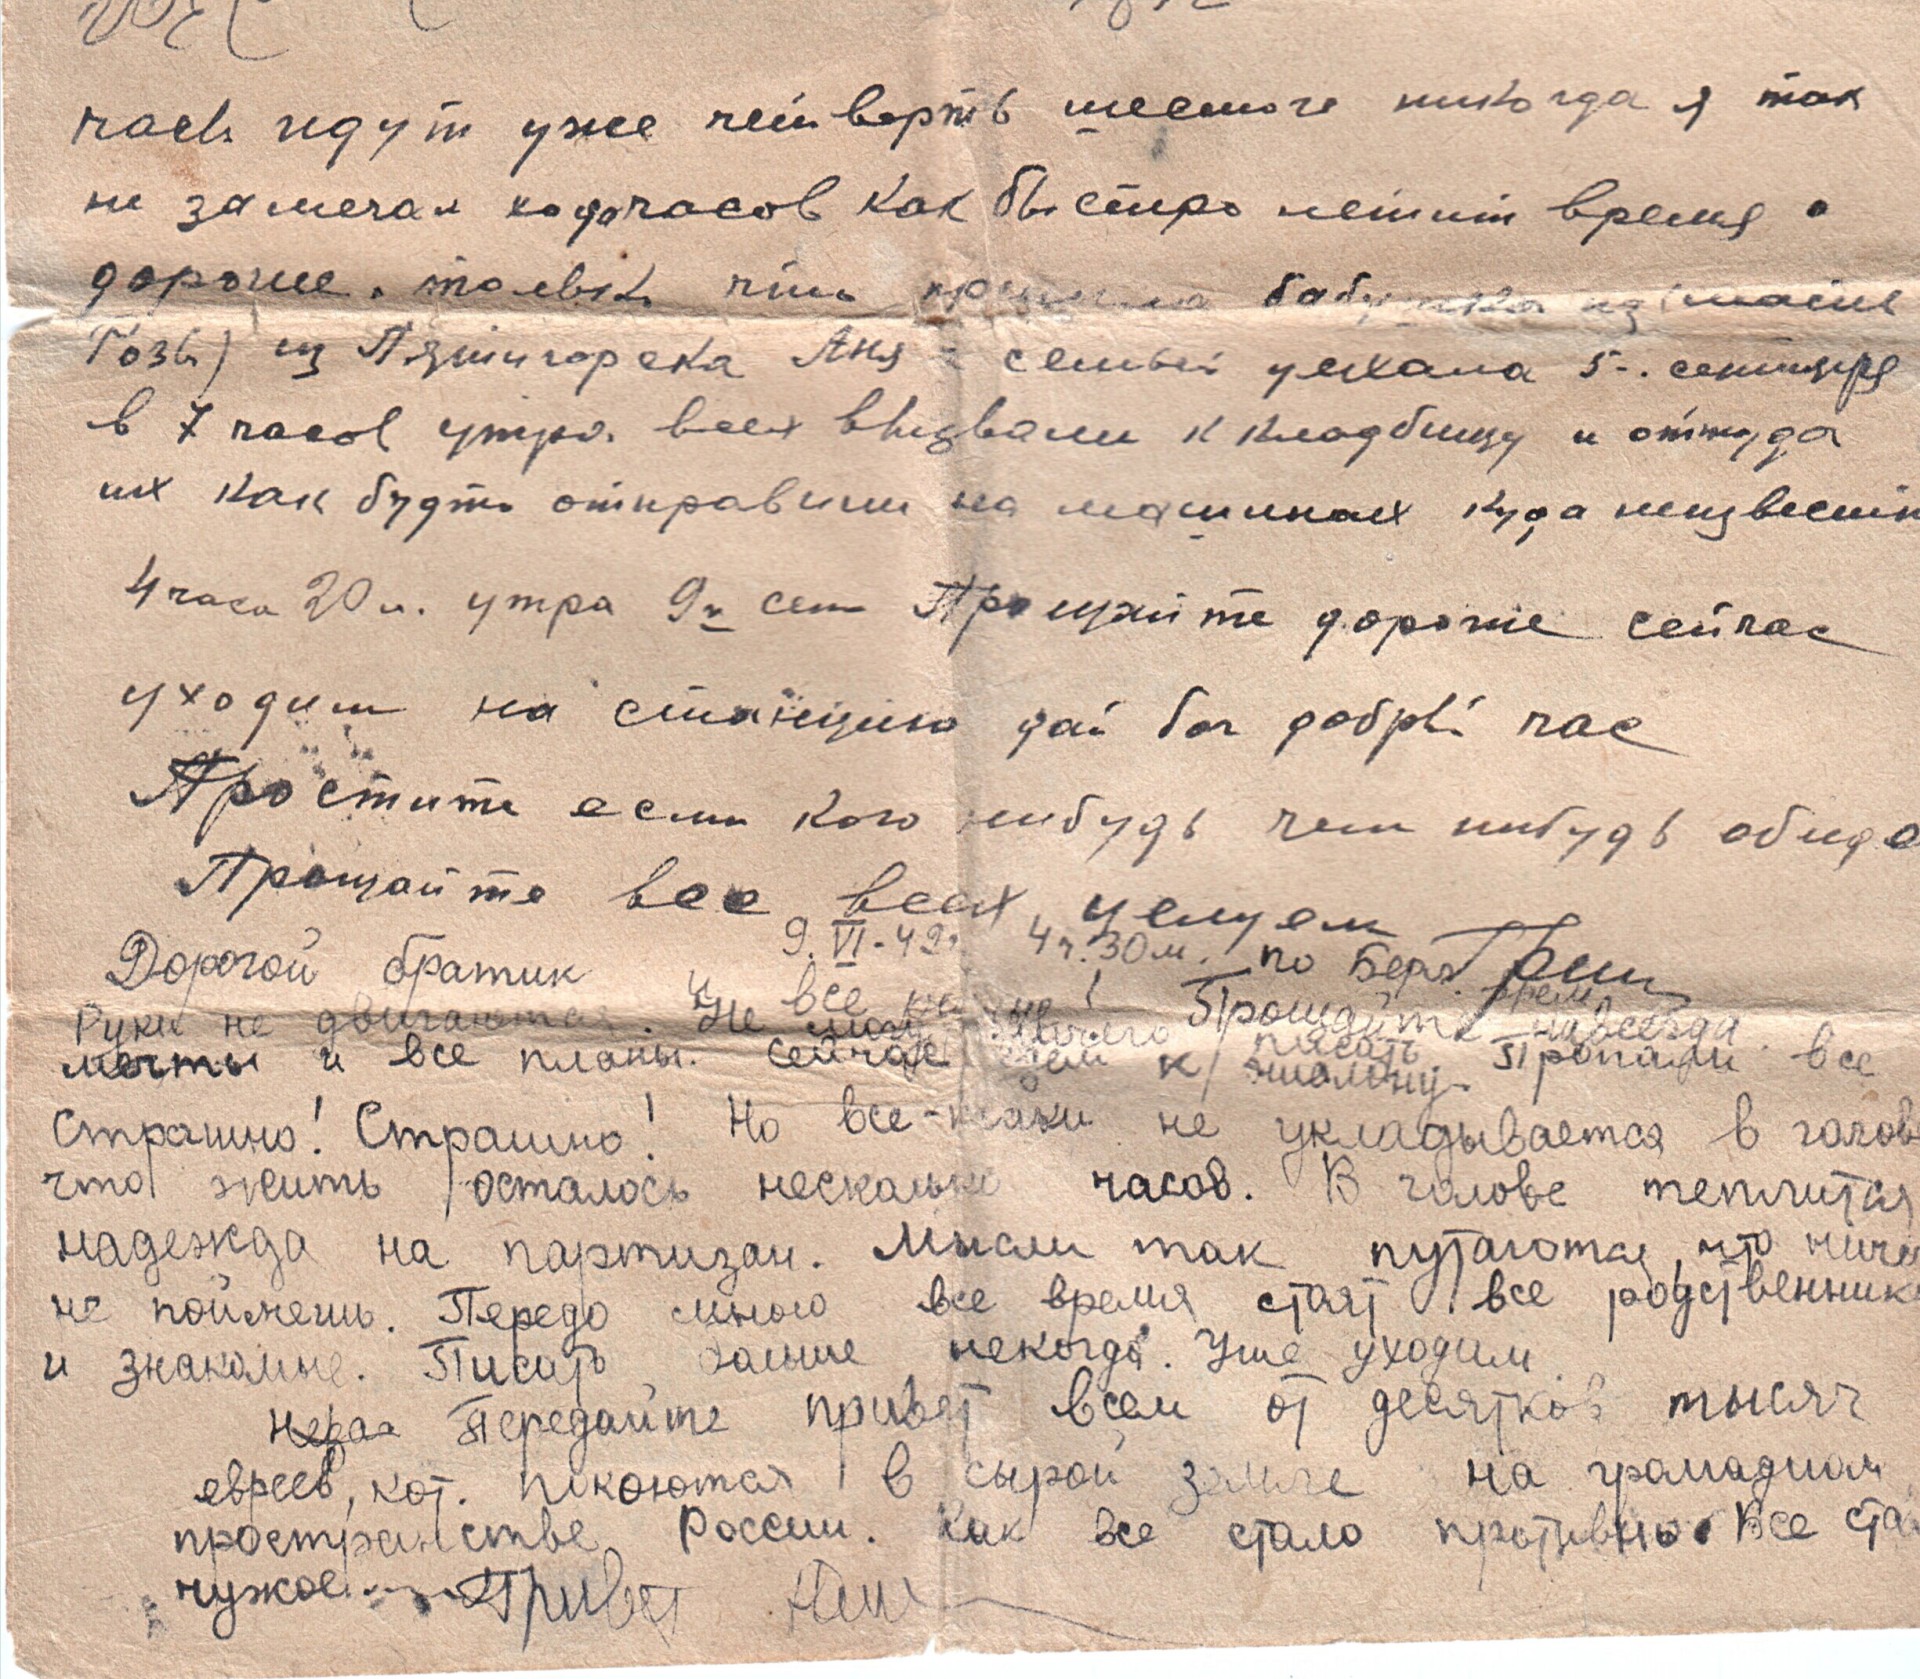 часы идут уже четверть шестого никогда я так
не замечал ход часов как быстро летит время о
дорогие. только что пришла бабушка из
Розы) из Пятигорска Аня с семьей уехала 5-. сентября
в 7 часов утра. всех вызвали к кладбищу и оттуда
их как будто отправили на машинах куда неизвестн
4 часа 20 м. утра 9го сен Прощайте дорогие сейчас
уходим на станцию дай бог добрый час
Простите если кого нибудь чем нибудь обидел
Прощайте все всех целуем
9. VI-42г. 4ч. 30м. по Берл. врем
Дорогой братик и все! Прощайте навсегда.
Руки не двигаются. Не могу ничего писать Пропали все
мечты и все планы. Сейчас идем к эшалону.
Страшно! Страшно! Но все-таки не укладывается в голове
что жить осталось несколько часов. В голове теплится
надежда на партизан. Мысли так путаются, что ниче
не поймешь. Передо мною все время стоят все родственники
и знакомые. Писать дальше некогда. Уже уходим
Передайте привет всем от десятков тысяч
евреев, кот. покоются в сырой земле на грамадном
пространстве России. Как все стало противно. Все ста
чужое. Привет